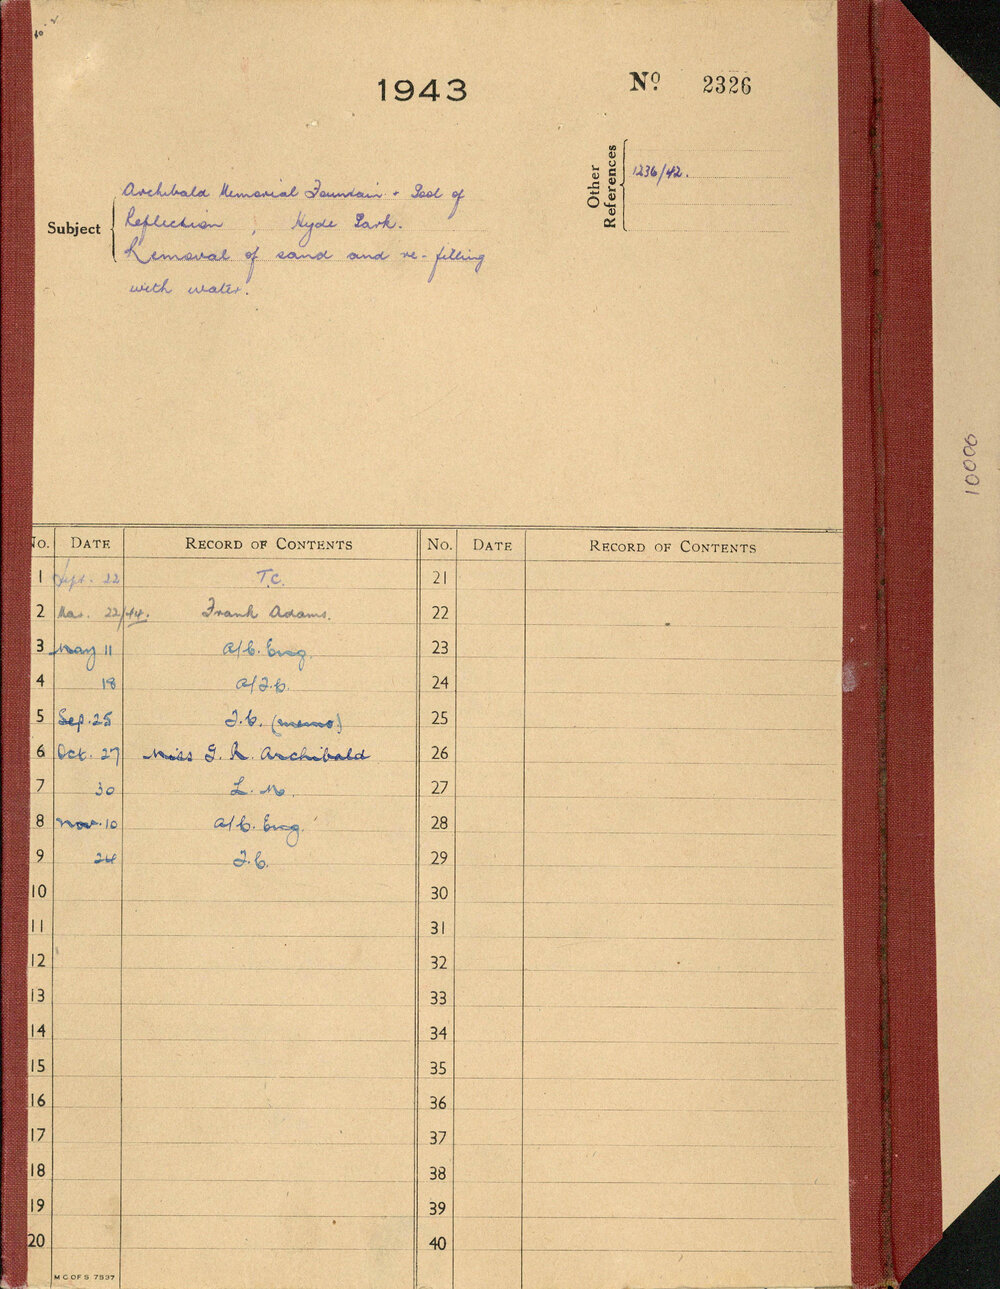 1943
Nº 2326
Other References
1236/42.
Subject
Archibald Memorial Fountain + Pool of
Reflection , Hyde Park.
Removal of sand and re-filling
with water.
10006
No. DATE RECORD OF CONTENTS No. DATE RECORD OF CONTENTS
1 Sept. 22 T.C. 21
2 Mar. 22/44. Frank Adams. 22
3 May 11 A/C. Eng. 23
4 18 A/T.C. 24
5 Sep. 25 T.C. (memo) 25
6 Oct. 27 Miss G. R. Archibald 26
7 30 L. M. 27
8 Nov. 10 A/C. Eng. 28
9 24 T.C. 29
10 30
11 31
12 32
13 33
14 34
15 35
16 36
17 37
18 38
19 39
20 40
M C OF S 7537